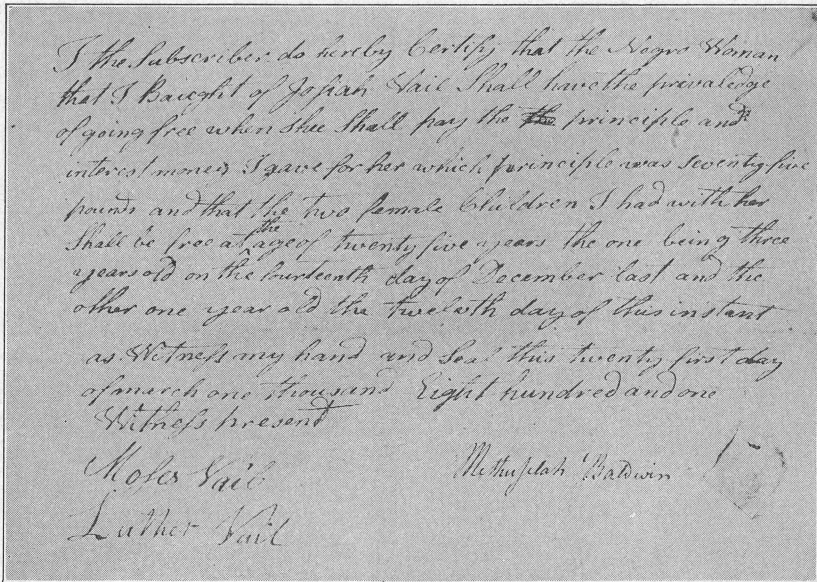 I the Subscriber do hereby Certify that the Negro Woman
that I Baught of Josiah Vail Shall have the privaledge
of going free when shee Shall pay the the principle and
interest money I gave for her which principle was Seventy five
pounds and that the two female Children I had with her
Shall be free at the age of twenty five years the one being three
years old on the fourteenth day of December last and the
other one year old the twelvth day of this instant
as Witness my hand and Seal this twenty first day
of march one thousand Eight hundred and one
Witness present
Moses Vail
Methuselah Baldwin
Luther Vail